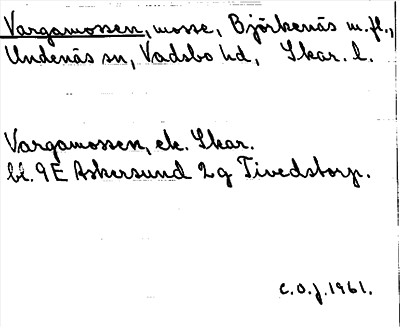 Vargamossen, mosse, Björkenäs m.fl.,
Undenäs sn, Vadsbo hd, Skar. l.
Vargamossen, ek. Skar.
bl. 9E Askersund 2g Tivedstorp.
C.O.J. 1961.